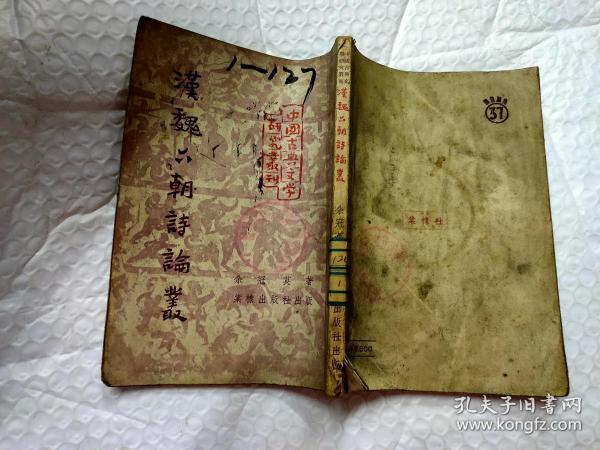 漢魏六朝詩論叢
1—127
中國古典文學
研究叢刊
余冠英 著
棠棣出版社出版
漢魏六朝詩論叢
余冠
126
1
出版社出版
37
棠棣社
孔夫子旧书网
kongfz.com